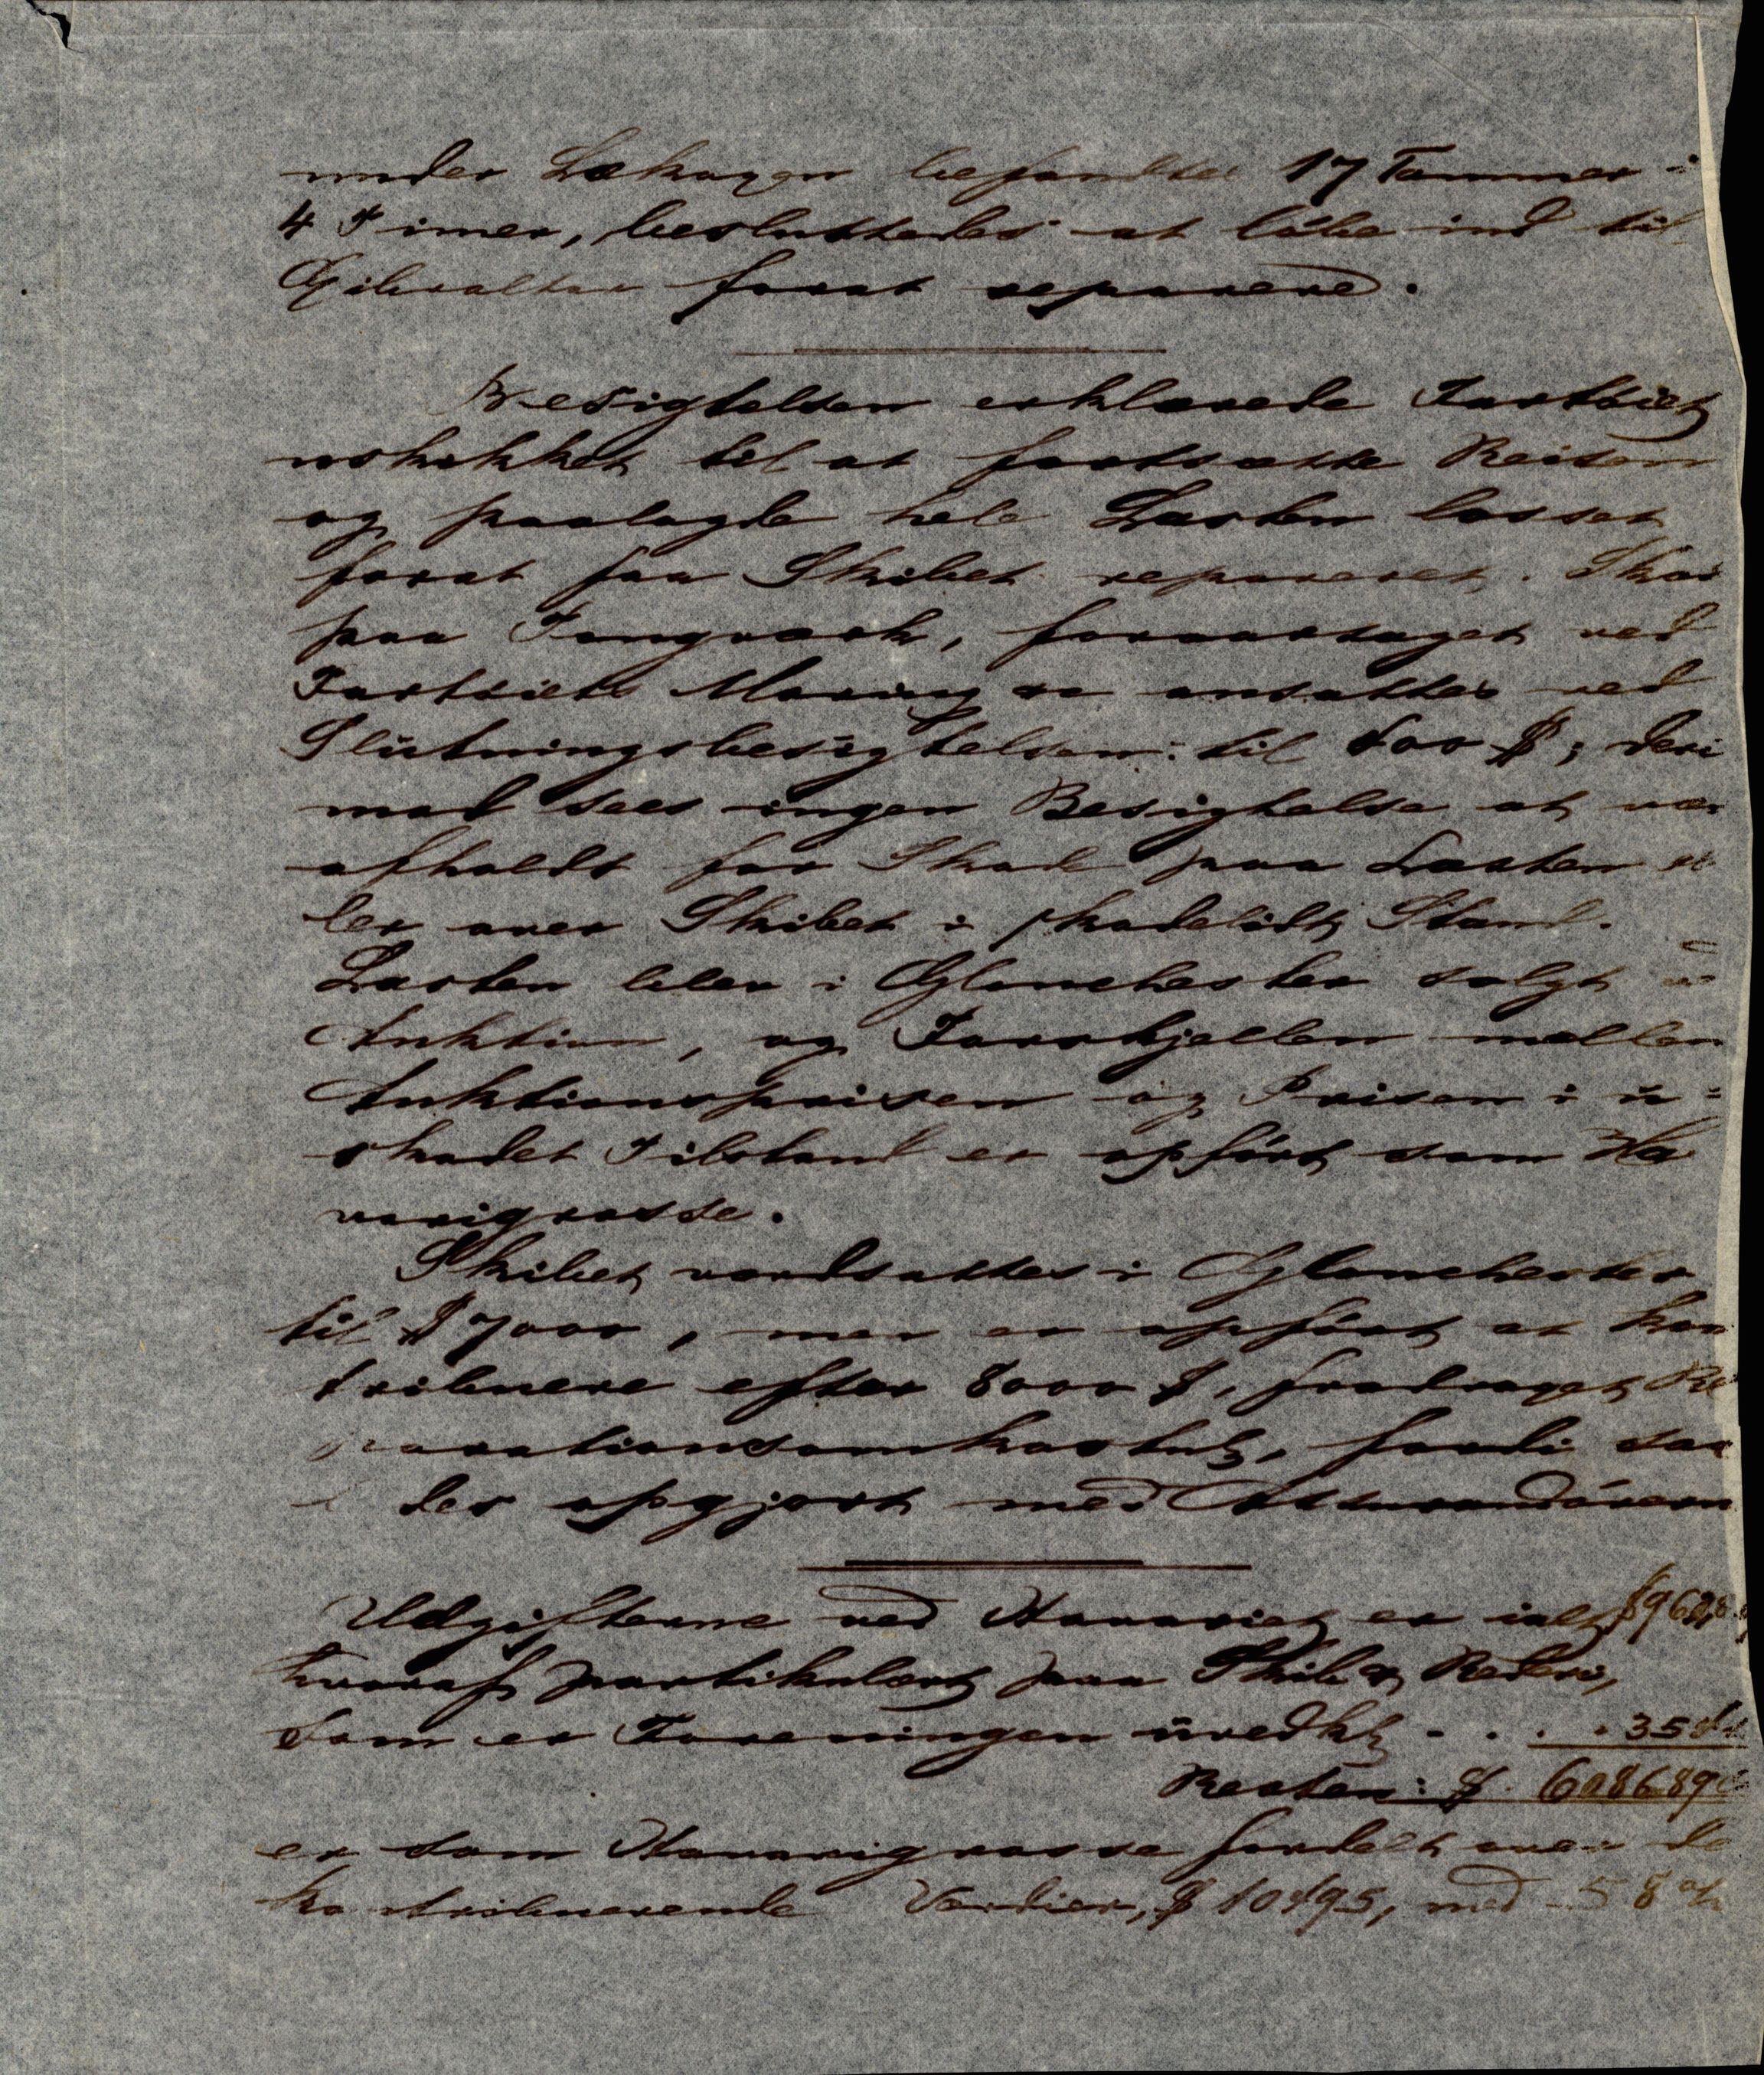 under Lækagen befandtes 17 Tommer i
4 Timer, besluttedes at löbe ind til
Gibraltar forat reparere.
Besigtelsen erklærede Fartöiet
uskikket til at fortsætte Reisen
og paalagde hele Lasten losset
forat faa Skibet repareret. Skad
paa Tougværk, foraarsaget ved
Fartöiets Moring er ansattes ved
Slutningsbesigtelsen: til 400 $; deri
mod sees ingen Besigtelse at vær
afholdt for Skade paa Lasten el
ler over Skibet i skadelidt Stand.
Lasten blev i Glouchester solgt v
Auktion, og Forskjellen mellem
Auktionsprisen og Prisen i u=
skadet Tilstand er opfört som Ha
varigrosse.
Skibet værdsattes i Glouchester
til $ 7000, men er opfört at kon
tribuere efter 8000 $, fradraget Re
parationsomkostng, fordi saa
des opgjort med Assurandörern
Udgifterne ved Havariet er ialt
hvoraf partikulært paa Skib & Rederi,
som er Foreningen uvedkt - . . .
Resten: $.
er som Havarigrosse fordelt over de
kontribuerende Værdier, $ 10495, med 58